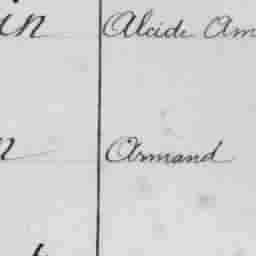 in Alcide Am
n Armand